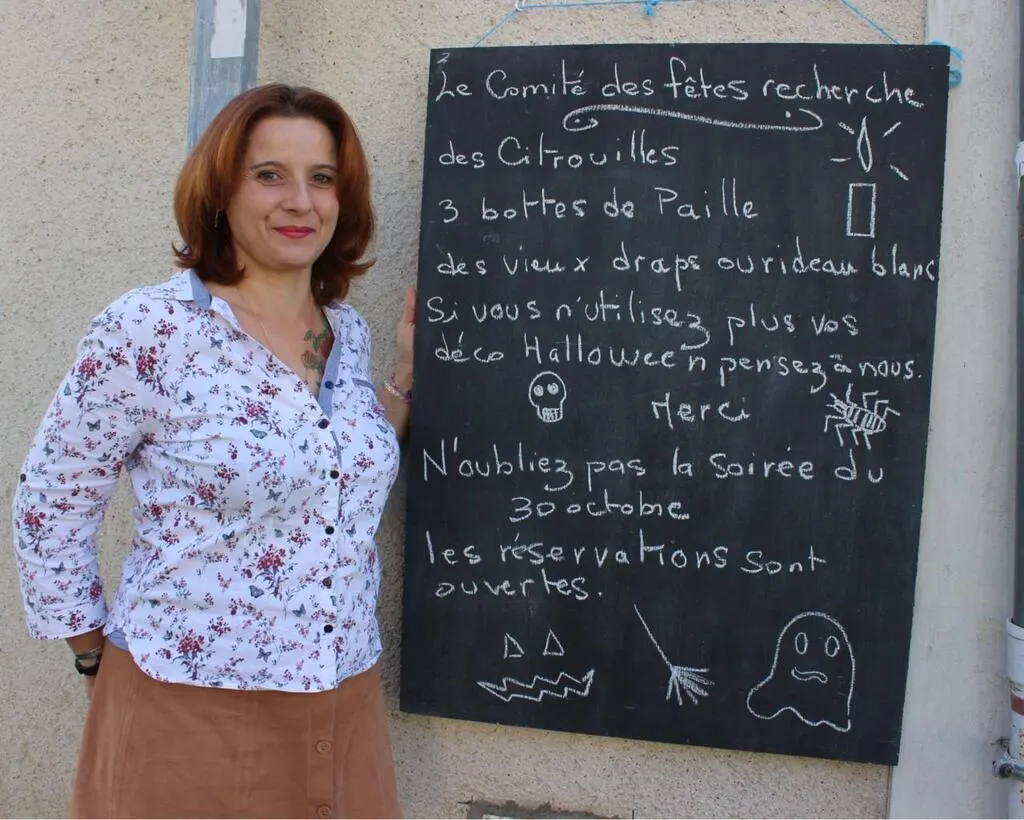 Le Comité des fêtes recherche
des Citrouilles
3 bottes de Paille
des vieux draps ou rideau blanc
Si vous n'utilisez plus vos
déco Halloween pensez à nous.
Merci
N'oubliez pas la Soirée du
30 octobre
les réservations sont
ouvertes.